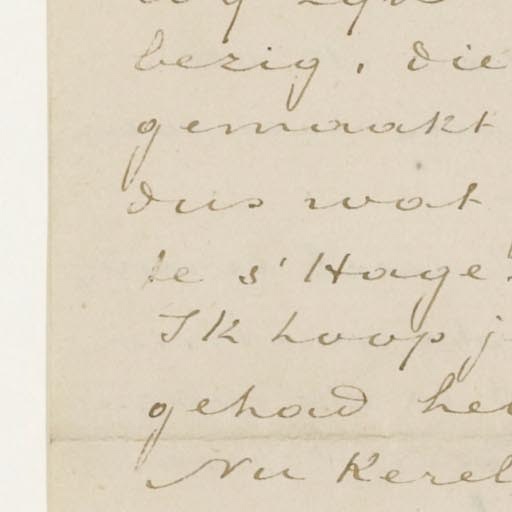 bezig, die
gemaakt
dus wat
te s'Hage
Ik hoop
gehad
Nu Kerel